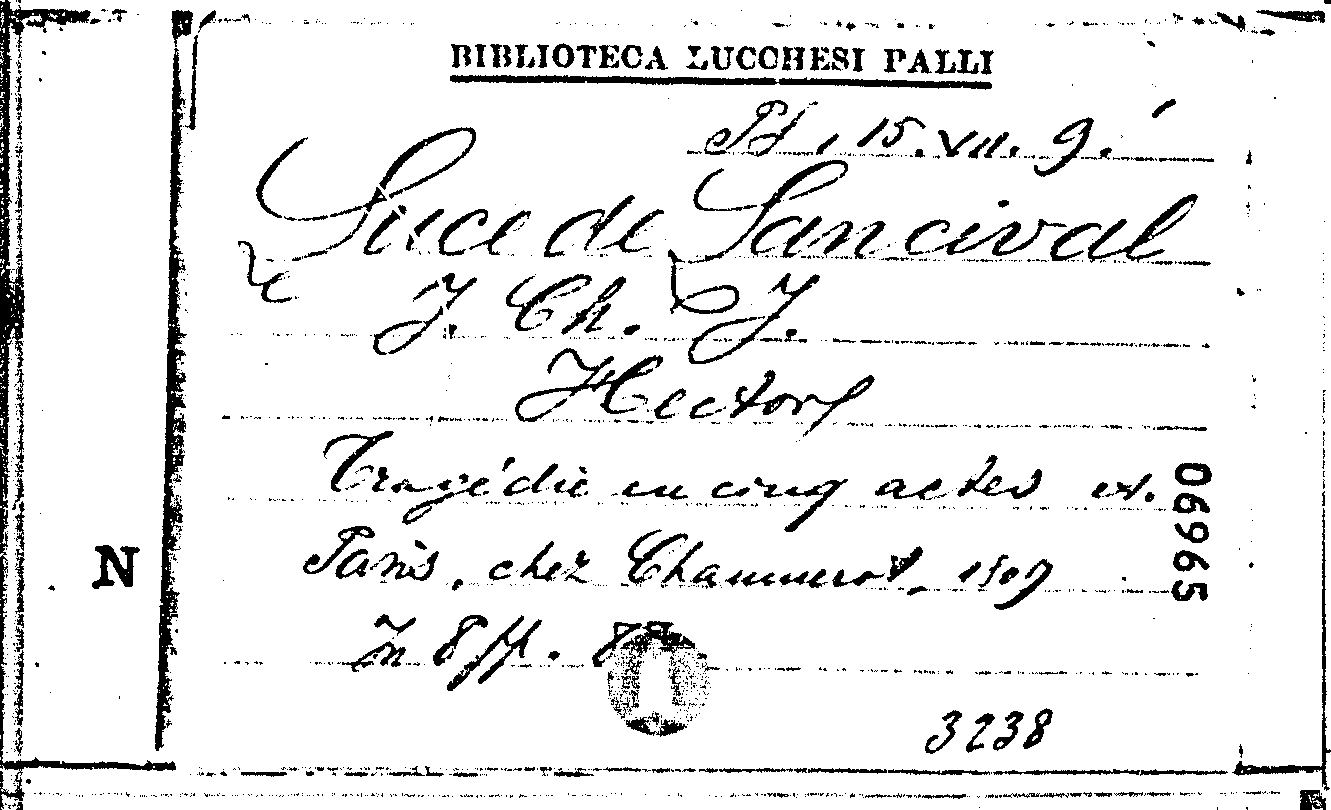 BIBLIOTECA LUCCHESI PALLI
15.VII.9.
Luce de Lancival
J. Ch. J.
Hector
Tragédie en cinq actes et.
Paris, chez Chaumerot, 1809
In 8 pp.
3238
06965
N